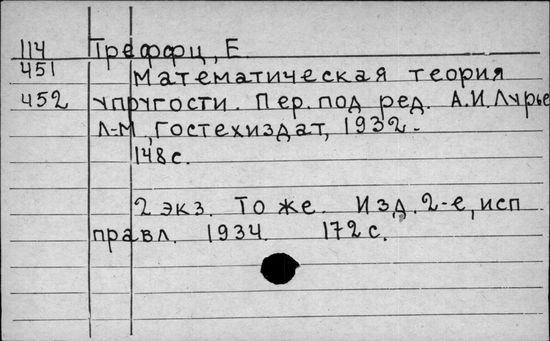 114 Треффц, Е.
451 Математическая теория
452 упругости. Пер. под ред. А.И. Лурье
Л-М, Гостехиздат, 1932.-
148 с.
2 экз. То же. Изд. 2-е, исп
правл. 1934. 172 с.